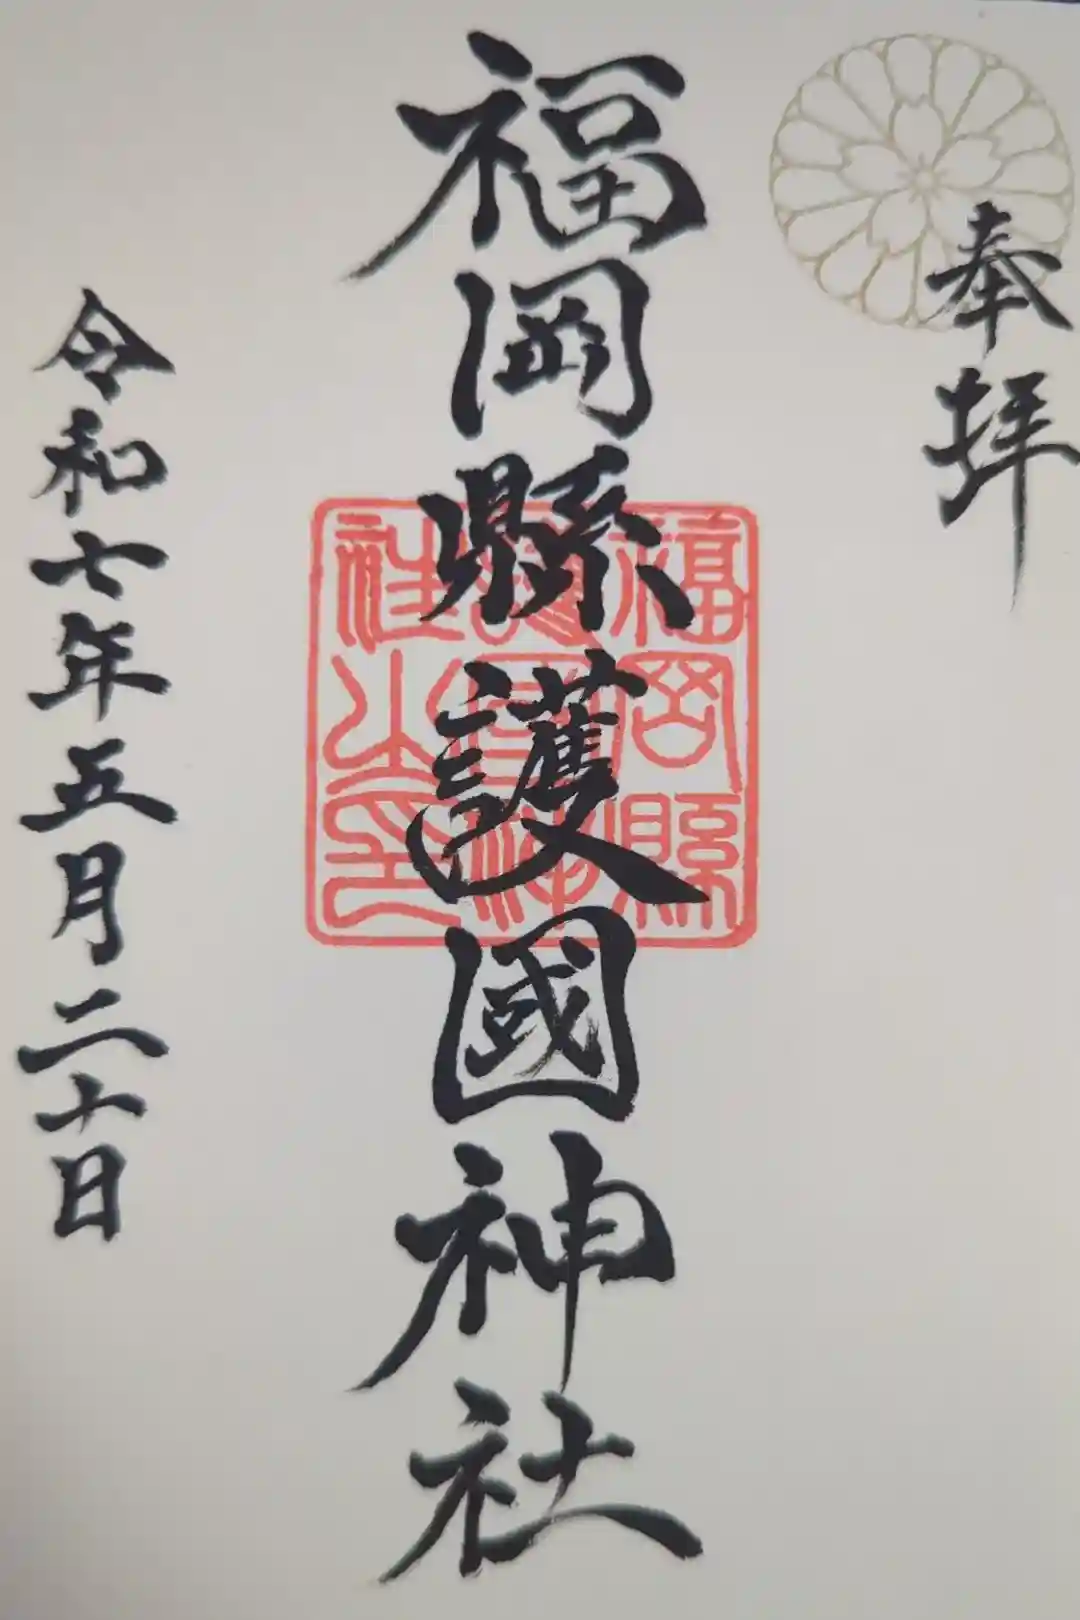 奉拝
福岡縣護國神社
福岡縣
護國神
社之印
令和七年五月二十日